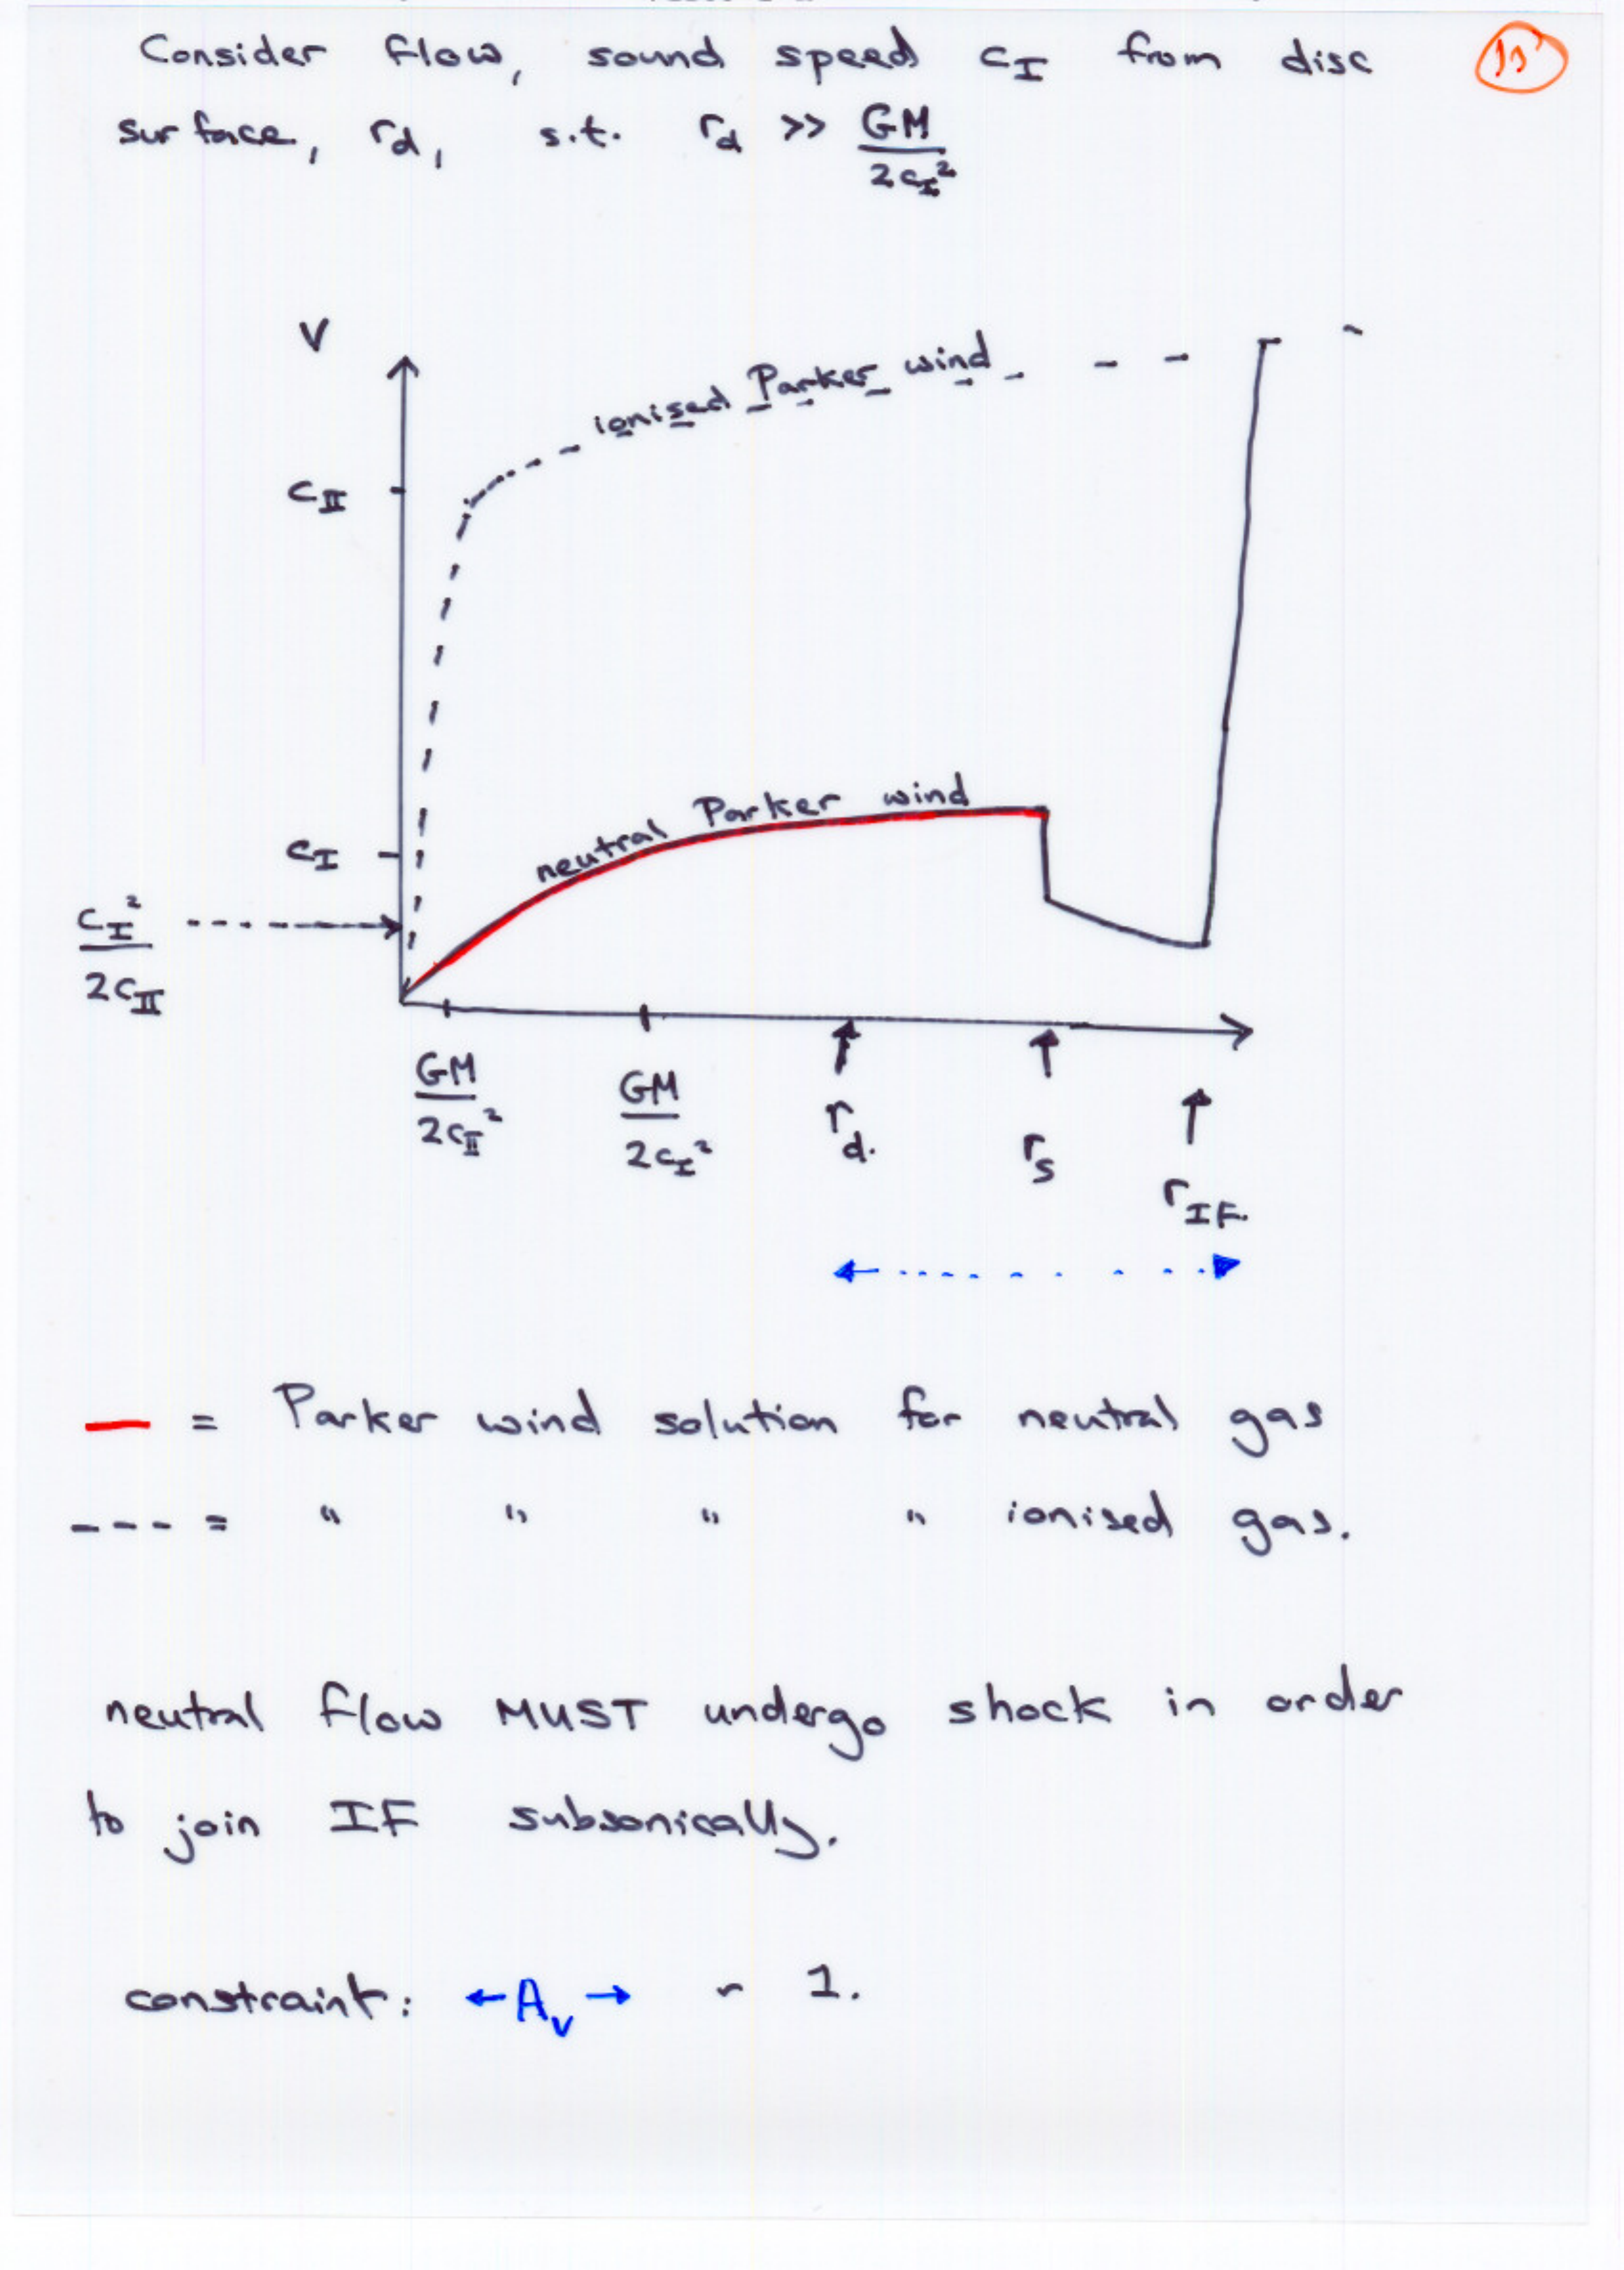 Consider flow, sound speed c_I from disc
surface, r_d, s.t. r_d >> GM/2c_I²
V
ionised Parker wind
c_II
neutral Parker wind
c_I
c_I²/2c_II
GM/2c_II²
GM/2c_I²
r_d.
r_s
r_IF.
— = Parker wind solution for neutral gas
--- = " " " " ionised gas.
neutral flow MUST undergo shock in order
to join IF subsonically.
constraint: ←A_v→ ~ 1.